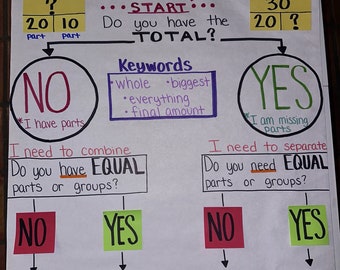 ?
20 10
part part
...START...
Do you have the
TOTAL?
30
20 ?
Keywords
•whole •biggest
•everything
•final amount
NO
*I have parts
YES
*I am missing
parts
I need to combine
Do you have EQUAL
parts or groups?
I need to separate
Do you need EQUAL
parts or groups?
NO
YES
NO
YES